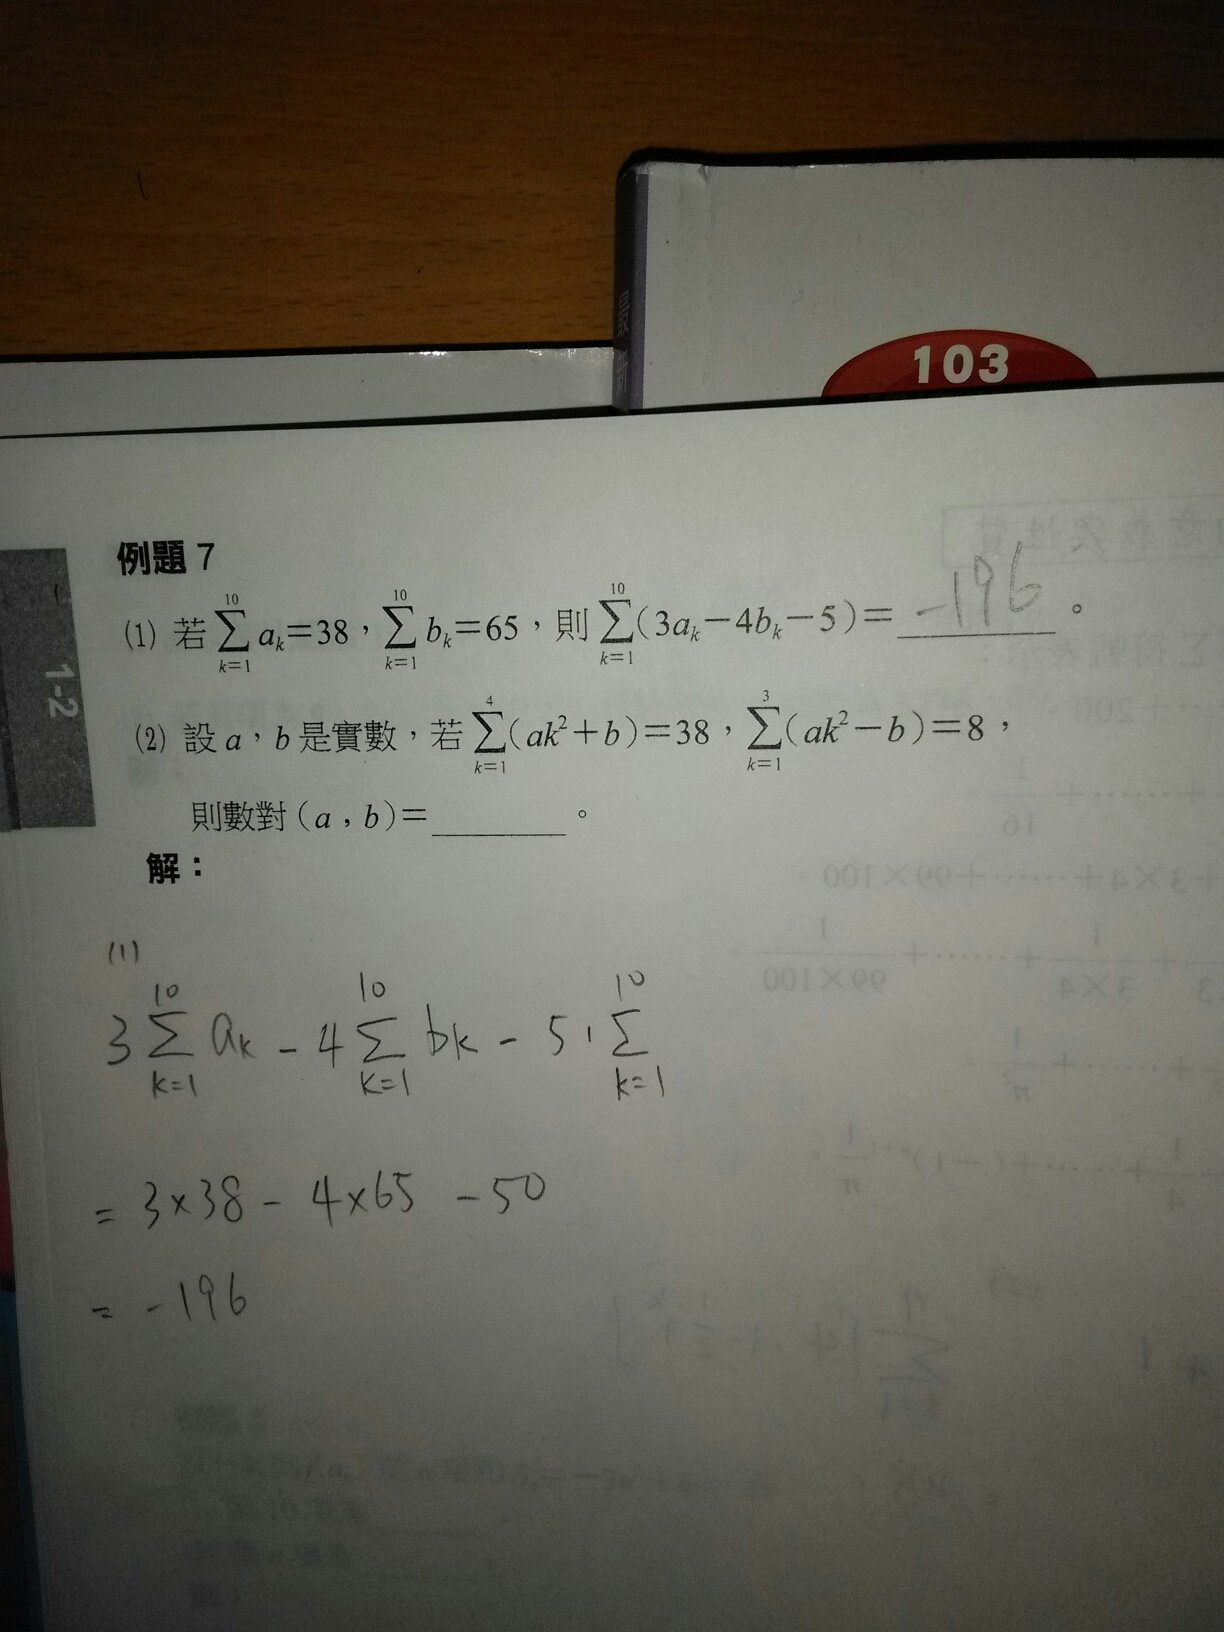 最新
103
1-2
例題 7
(1) 若 $\sum_{k=1}^{10} a_k=38$，$\sum_{k=1}^{10} b_k=65$，則 $\sum_{k=1}^{10}(3a_k-4b_k-5)=$ -196 。
(2) 設 a，b 是實數，若 $\sum_{k=1}^{4}(ak^2+b)=38$，$\sum_{k=1}^{3}(ak^2-b)=8$，
則數對(a，b)=______。
解：
(1)
$3\sum_{k=1}^{10} a_k - 4\sum_{k=1}^{10} b_k - 5 \cdot \sum_{k=1}^{10}$
= 3×38 - 4×65 - 50
= -196